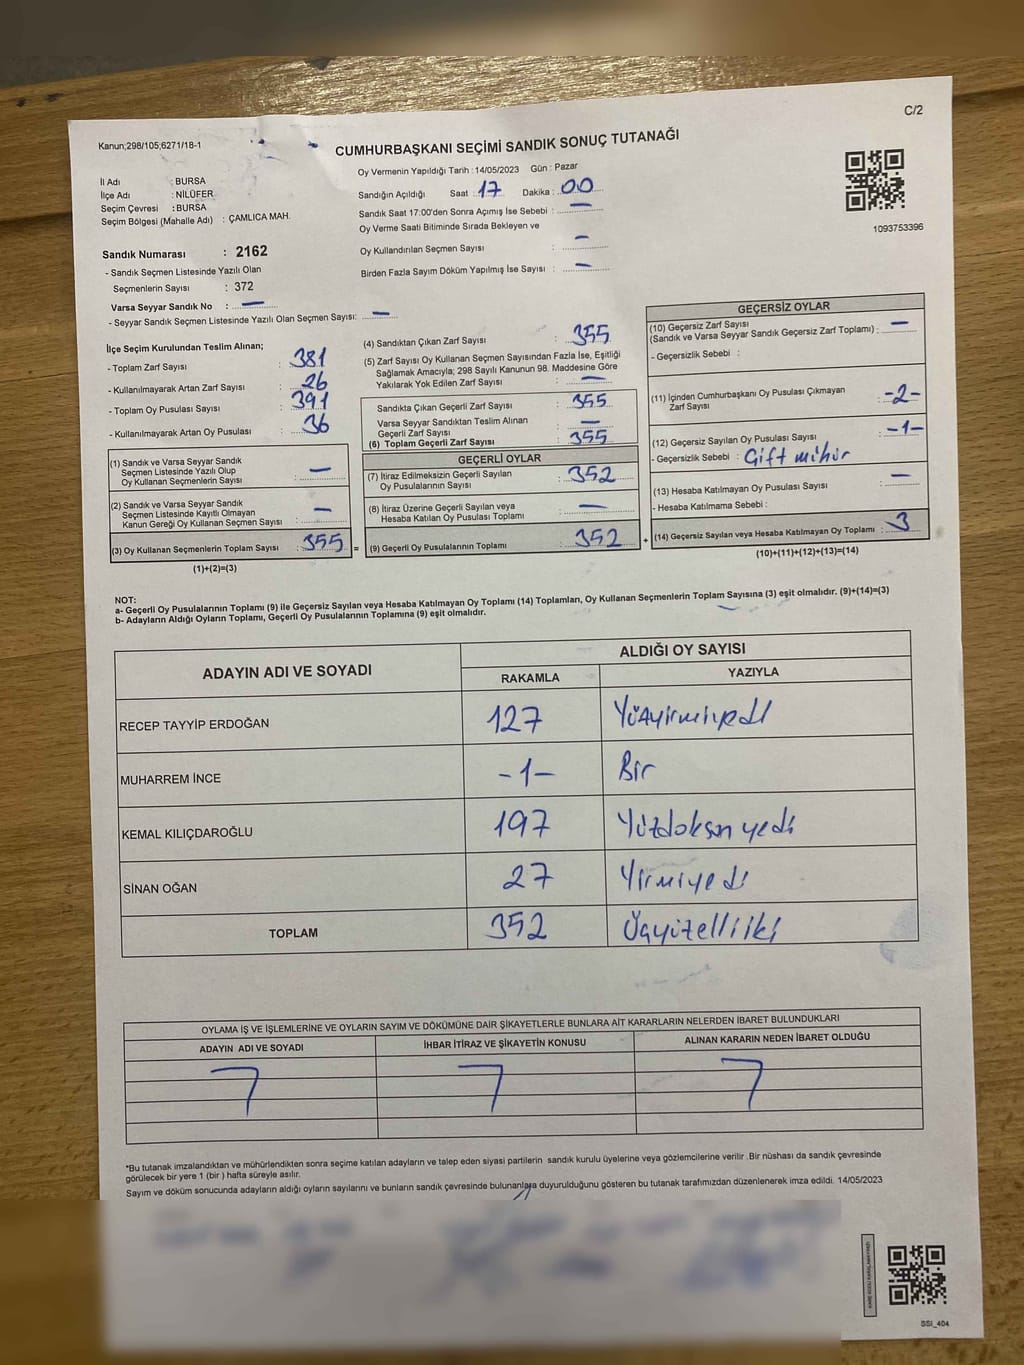 C/2
Kanun;298/105;6271/18-1
CUMHURBAŞKANI SEÇİMİ SANDIK SONUÇ TUTANAĞI
Oy Vermenin Yapıldığı Tarih : 14/05/2023 Gün : Pazar
İl Adı : BURSA
İlçe Adı : NİLÜFER
Seçim Çevresi : BURSA
Seçim Bölgesi (Mahalle Adı) : ÇAMLICA MAH.
Sandığın Açıldığı Saat : 17 Dakika : 00
Sandık Saat 17:00'den Sonra Açımış İse Sebebi : —
Oy Verme Saati Bitiminde Sırada Bekleyen ve
Oy Kullandırılan Seçmen Sayısı : —
Birden Fazla Sayım Döküm Yapılmış İse Sayısı : —
1093753396
Sandık Numarası : 2162
- Sandık Seçmen Listesinde Yazılı Olan
Seçmenlerin Sayısı : 372
Varsa Seyyar Sandık No : —
- Seyyar Sandık Seçmen Listesinde Yazılı Olan Seçmen Sayısı: —
İlçe Seçim Kurulundan Teslim Alınan;
- Toplam Zarf Sayısı : 381
- Kullanılmayarak Artan Zarf Sayısı : 26
- Toplam Oy Pusulası Sayısı : 391
- Kullanılmayarak Artan Oy Pusulası : 36
(1) Sandık ve Varsa Seyyar Sandık
Seçmen Listesinde Yazılı Olup
Oy Kullanan Seçmenlerin Sayısı : —
(2) Sandık ve Varsa Seyyar Sandık
Seçmen Listesinde Kayıtlı Olmayan
Kanun Gereği Oy Kullanan Seçmen Sayısı : —
(3) Oy Kullanan Seçmenlerin Toplam Sayısı : 355 =
(1)+(2)=(3)
(4) Sandıktan Çıkan Zarf Sayısı : 355
(5) Zarf Sayısı Oy Kullanan Seçmen Sayısından Fazla İse, Eşitliği
Sağlamak Amacıyla; 298 Sayılı Kanunun 98. Maddesine Göre
Yakılarak Yok Edilen Zarf Sayısı : —
Sandıkta Çıkan Geçerli Zarf Sayısı : 355
Varsa Seyyar Sandıktan Teslim Alınan
Geçerli Zarf Sayısı : —
(6) Toplam Geçerli Zarf Sayısı : 355
GEÇERLİ OYLAR
(7) İtiraz Edilmeksizin Geçerli Sayılan
Oy Pusulalarının Sayısı : 352
(8) İtiraz Üzerine Geçerli Sayılan veya
Hesaba Katılan Oy Pusulası Toplamı : —
(9) Geçerli Oy Pusulalarının Toplamı : 352 +
GEÇERSİZ OYLAR
(10) Geçersiz Zarf Sayısı
(Sandık ve Varsa Seyyar Sandık Geçersiz Zarf Toplamı) : —
- Geçersizlik Sebebi :
(11) İçinden Cumhurbaşkanı Oy Pusulası Çıkmayan
Zarf Sayısı : -2-
(12) Geçersiz Sayılan Oy Pusulası Sayısı : -1-
- Geçersizlik Sebebi : Çift mühür
(13) Hesaba Katılmayan Oy Pusulası Sayısı : —
- Hesaba Katılmama Sebebi :
(14) Geçersiz Sayılan veya Hesaba Katılmayan Oy Toplamı : 3
(10)+(11)+(12)+(13)=(14)
NOT:
a- Geçerli Oy Pusulalarının Toplamı (9) ile Geçersiz Sayılan veya Hesaba Katılmayan Oy Toplamı (14) Toplamları, Oy Kullanan Seçmenlerin Toplam Sayısına (3) eşit olmalıdır. (9)+(14)=(3)
b- Adayların Aldığı Oyların Toplamı, Geçerli Oy Pusulalarının Toplamına (9) eşit olmalıdır.
ADAYIN ADI VE SOYADI
ALDIĞI OY SAYISI
RAKAMLA YAZIYLA
RECEP TAYYİP ERDOĞAN 127 Yüzyirmiyedi
MUHARREM İNCE -1- Bir
KEMAL KILIÇDAROĞLU 197 Yüzdoksanyedi
SİNAN OĞAN 27 Yirmiyedi
TOPLAM 352 Üçyüzelliiki
OYLAMA İŞ VE İŞLEMLERİNE VE OYLARIN SAYIM VE DÖKÜMÜNE DAİR ŞİKAYETLERLE BUNLARA AİT KARARLARIN NELERDEN İBARET BULUNDUKLARI
ADAYIN ADI VE SOYADI İHBAR İTİRAZ VE ŞİKAYETİN KONUSU ALINAN KARARIN NEDEN İBARET OLDUĞU
*Bu tutanak imzalandıktan ve mühürlendikten sonra seçime katılan adayların ve talep eden siyasi partilerin sandık kurulu üyelerine veya gözlemcilerine verilir .Bir nüshası da sandık çevresinde
görülecek bir yere 1 (bir ) hafta süreyle asılır.
Sayım ve döküm sonucunda adayların aldığı oyların sayılarını ve bunların sandık çevresinde bulunanlara duyurulduğunu gösteren bu tutanak tarafımızdan düzenlenerek imza edildi. 14/05/2023
SSI_404